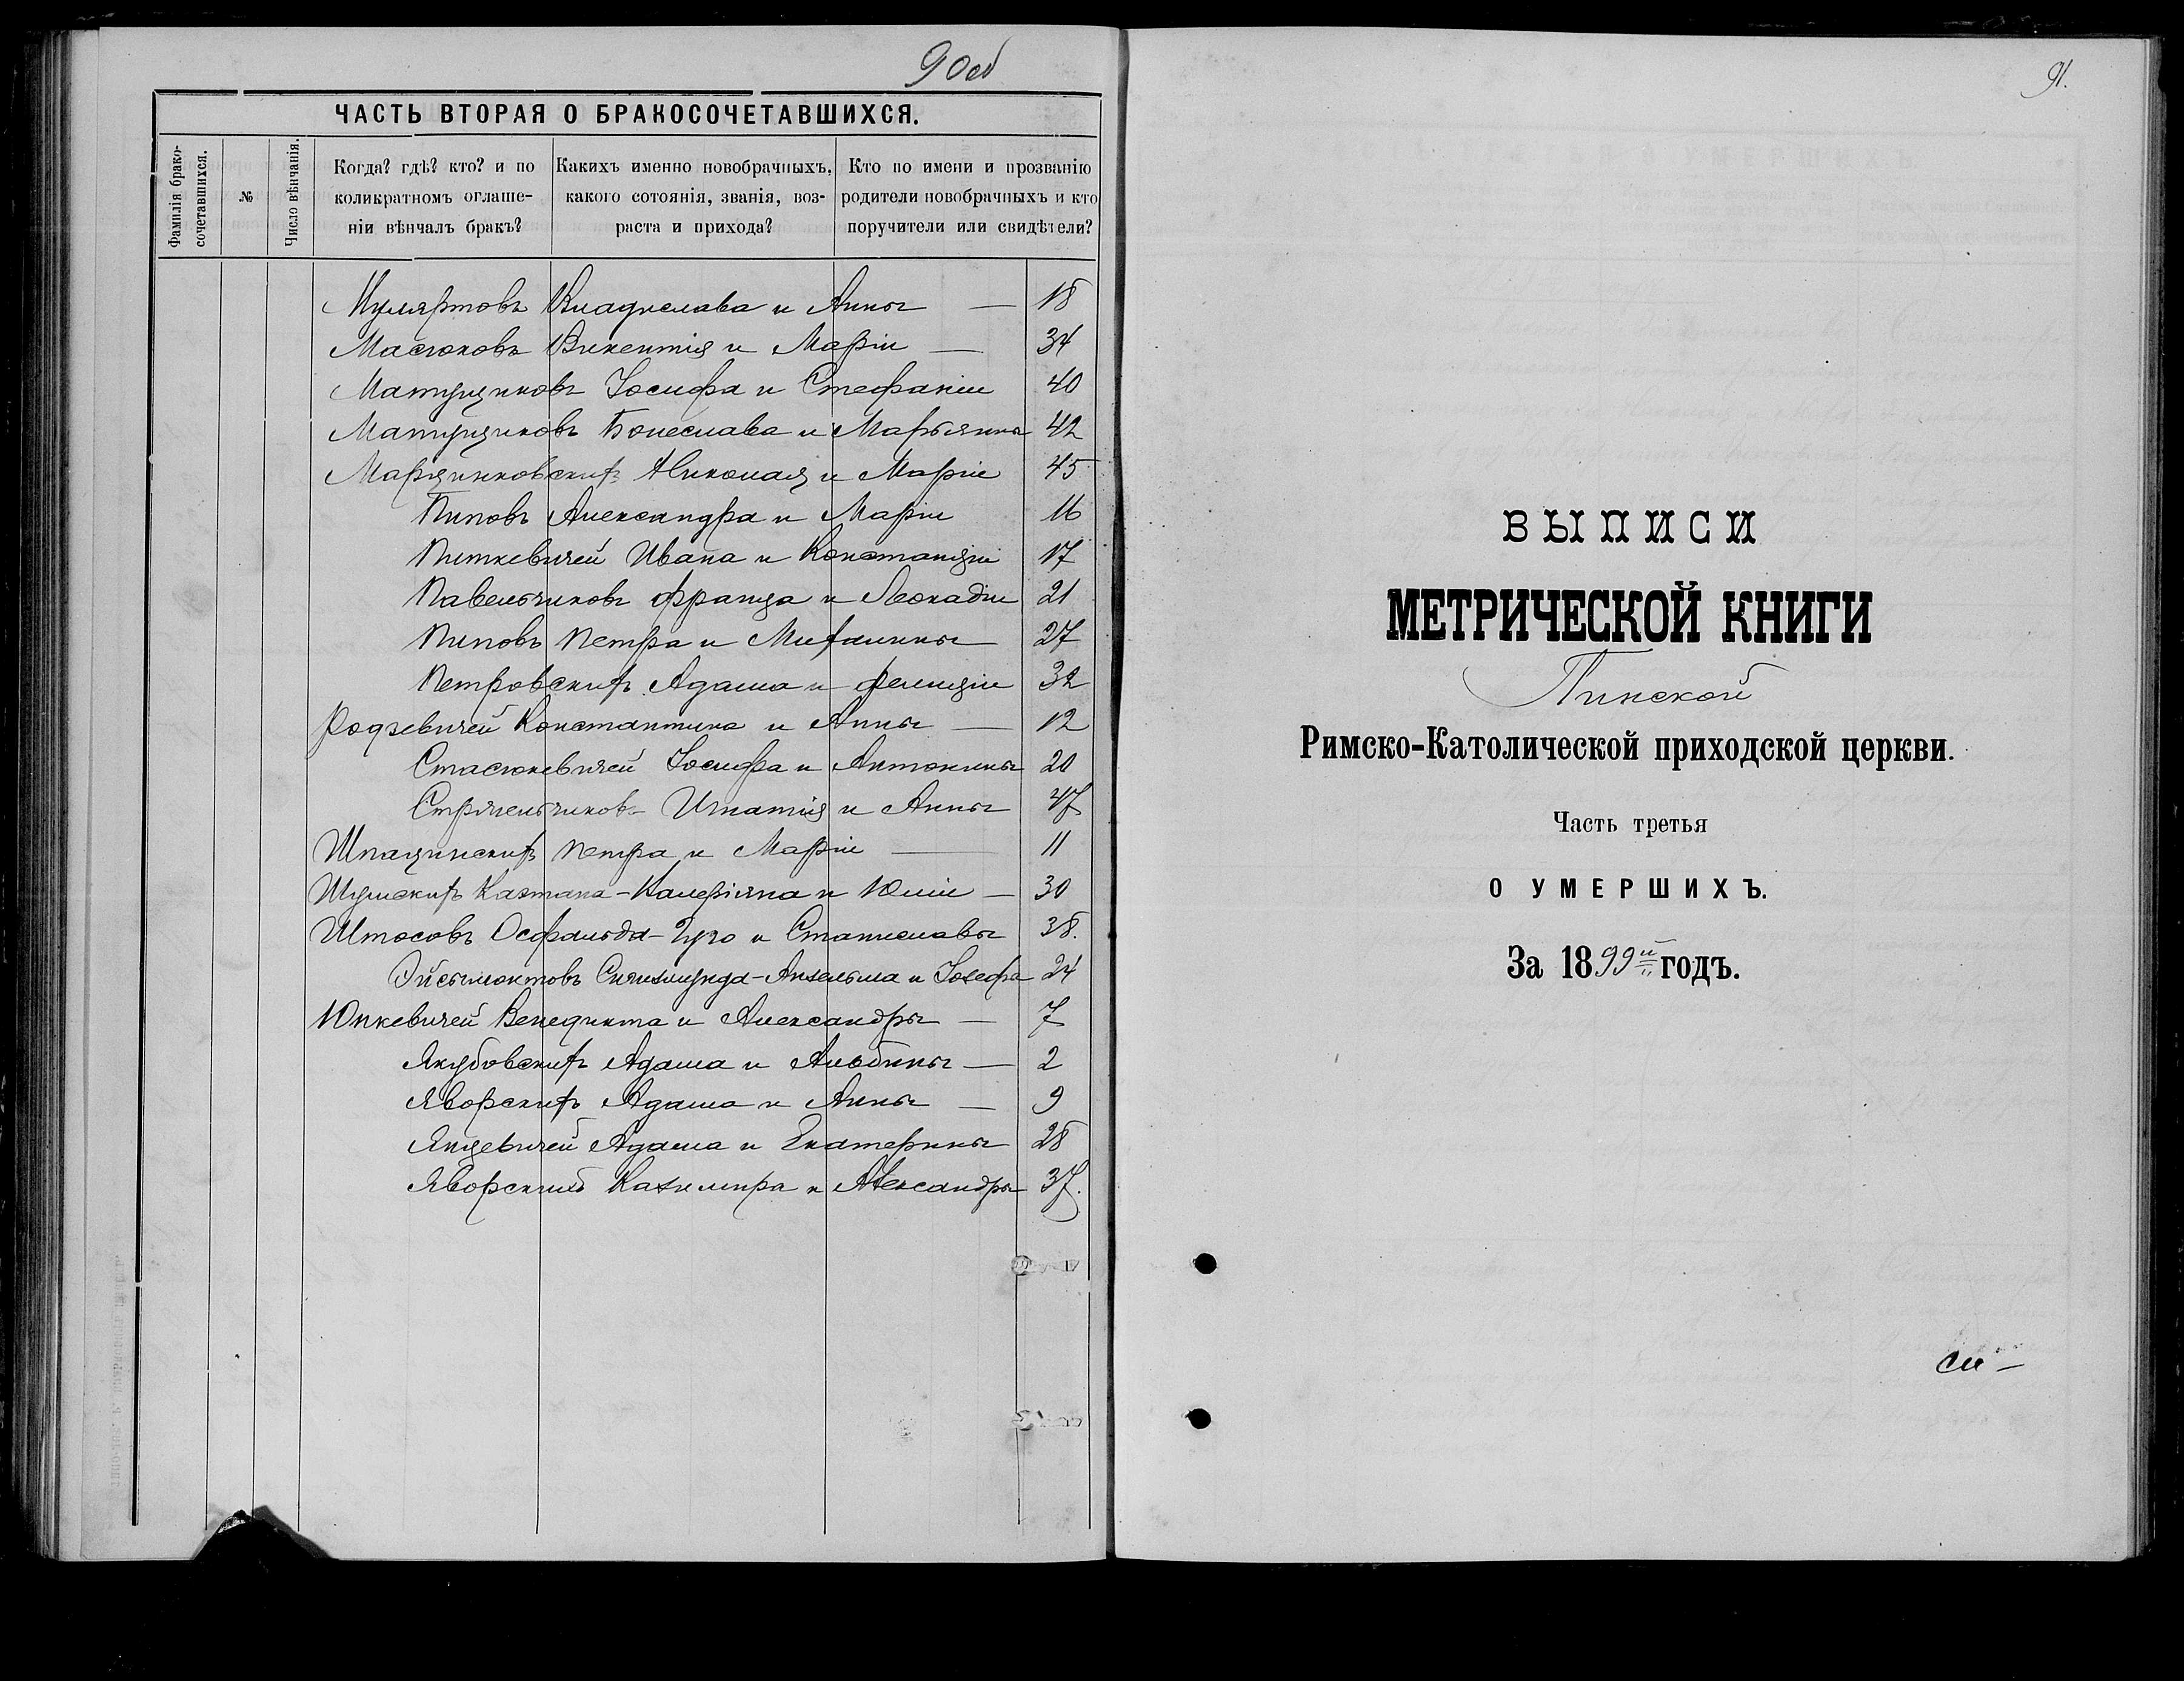 90 об
ЧАСТЬ ВТОРАЯ О БРАКОСОЧЕТАВШИХСЯ.
Фамилія брако-
сочетавшихся.
№
Число вѣнчанія.
Когда? гдѣ? кто? и по
коликратномъ оглаше-
ніи вѣнчалъ бракъ?
Какихъ именно новобрачныхъ,
какого сотоянія, званія, воз-
раста и прихода?
Кто по имени и прозванію
родители новобрачныхъ и кто
поручители или свидѣтели?
Муляртовъ Владислава и Анны — 18
Масюковъ Викентія и Маріи — 34
Матущиковъ Іосифа и Стефаніи 40
Матущиковъ Болеслава и Марьянны 42
Марцинковскихъ Николая и Маріи 45
Пиповъ Александра и Маріи 16
Питкевичей Ивана и Констанціи 17
Павельчиковъ Франца и Леокадіи 21
Пиповъ Петра и Михалины 27
Петровскихъ Адама и Фелиціи 32
Родзевичей Константина и Анны — 12
Стасюкевичей Іосифа и Антонины 20
Стрѣльчиковъ Игнатія и Анны 47
Шпацинскихъ Петра и Маріи — 11
Шумскихъ Каэтана-Валеріяна и Юліи — 30
Штосовъ Осфальда-Гуго и Станиславы 38.
Эйсымонтовъ Сигизмунда-Ансельма и Іозефы 24
Юпкевичей Венедикта и Александры — 7
Якубовскихъ Адама и Альбины — 2
Яворскихъ Адама и Анны — 9
Янцевичей Адама и Екатерины 28
Яворскихъ Казимира и Александры 37.
91.
ВЫПИСИ
МЕТРИЧЕСКОЙ КНИГИ
Пинской
Римско-Католической приходской церкви.
Часть третья
О УМЕРШИХЪ.
За 1899й годъ.